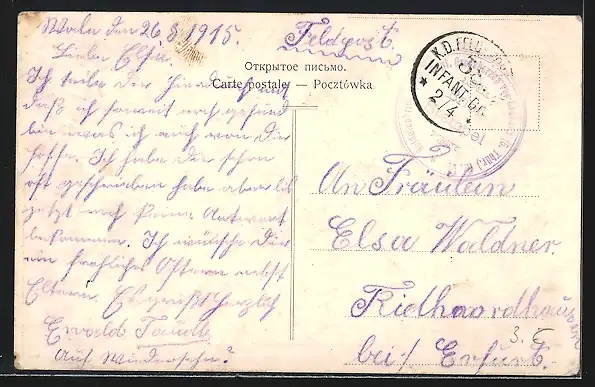 Wola den 26 3 1915.
Feldpost.
Открытое письмо.
Carte postale — Pocztówka
Liebe Elsa.
Ich teile dir hierdurch mit
daß ich soweit noch gesund
bin was ich auch von dir
hoffe. Ich habe dir schon
oft geschrieben habe aber bis
jetzt noch keine Antwort
bekommen. Ich wünsche dir
ein fröhliches Ostern nebst
Eltern. Es grüßt herzlich
Ewald
Auf Wiedersehn!
K.D. FELD
INFANT.
* 2/4
An Fräulein
Elsa Waldner.
bei/ Erfurt.
3. E